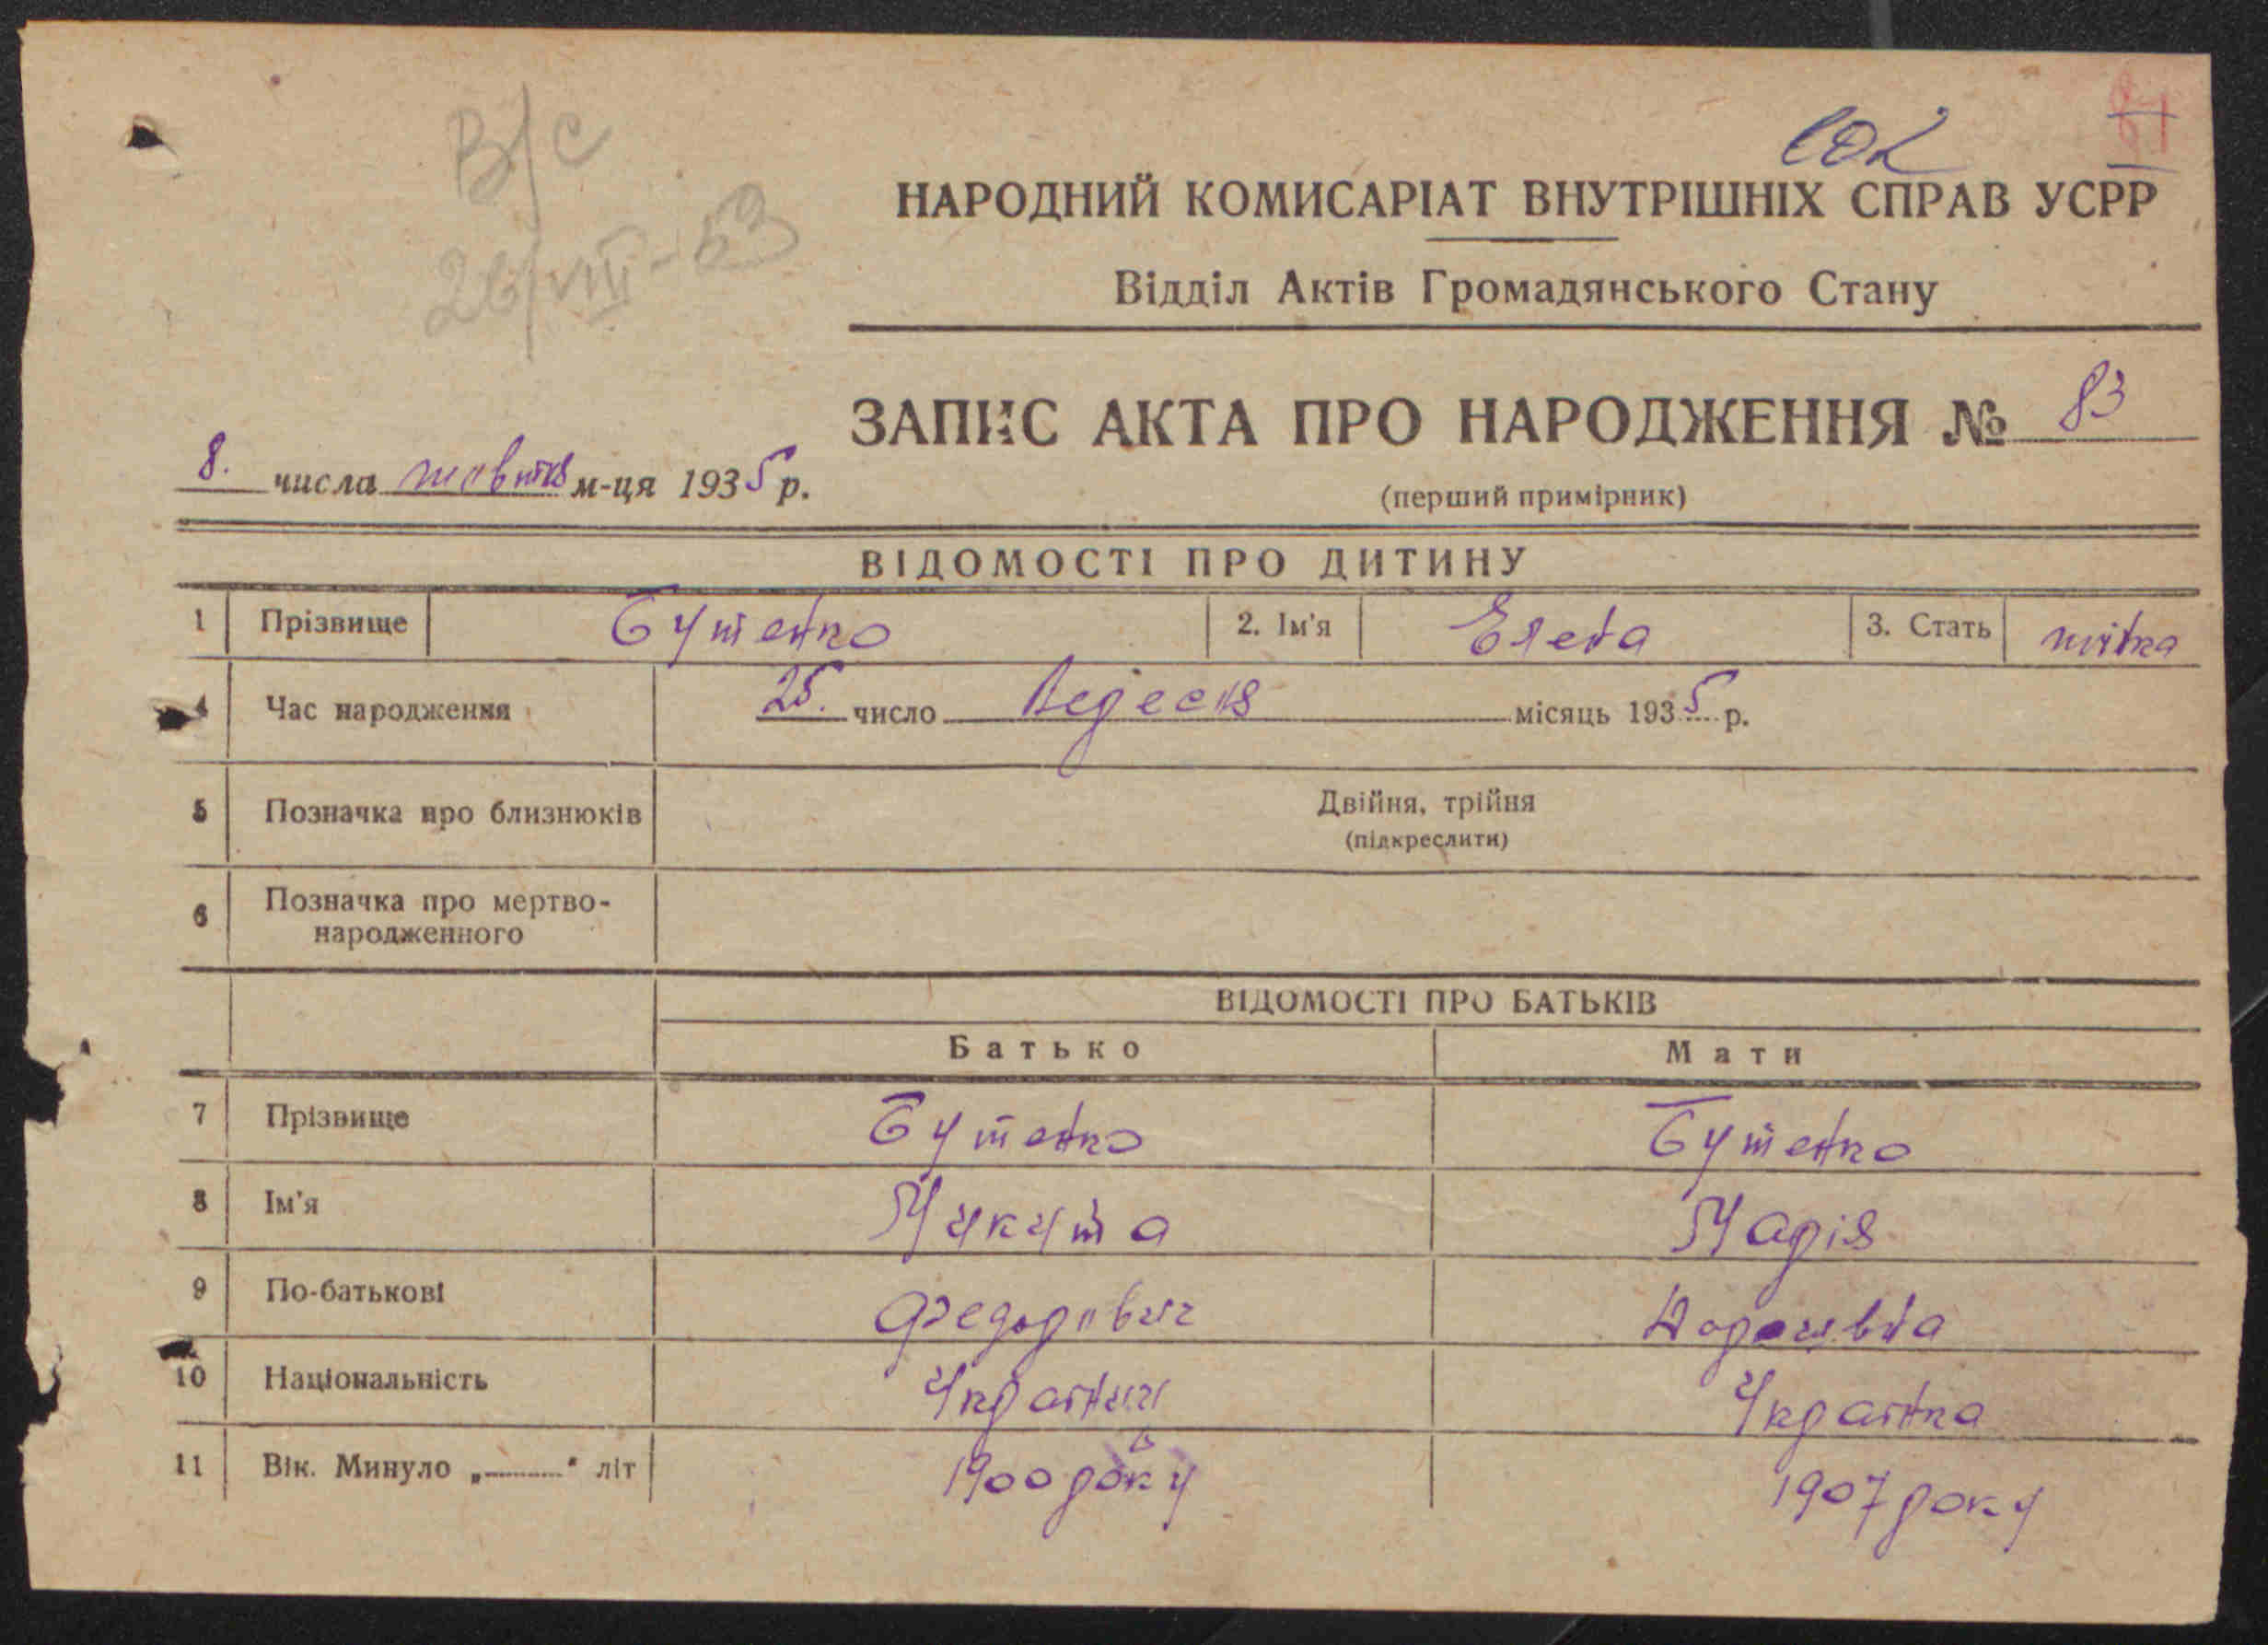 В/С
26/VIII-53
81
НАРОДНИЙ КОМИСАРІАТ ВНУТРІШНІХ СПРАВ УСРР
Відділ Актів Громадянського Стану
ЗАПИС АКТА ПРО НАРОДЖЕННЯ № 83
8. числа жовтня м-ця 1935 р.
(перший примірник)
ВІДОМОСТІ ПРО ДИТИНУ
1 Прізвище Бутенко 2. Ім'я Елена 3. Стать жінка
4 Час народження 25. число Вересня місяць 1935 р.
5 Позначка про близнюків Двійня, трійня
(підкреслити)
6 Позначка про мертво-
народженного
ВІДОМОСТІ ПРО БАТЬКІВ
Батько Мати
7 Прізвище Бутенко Бутенко
8 Ім'я Микита Марія
9 По-батькові Федорович
10 Національність Українец Українка
11 Вік. Минуло „ " літ 1900 року 1907 року